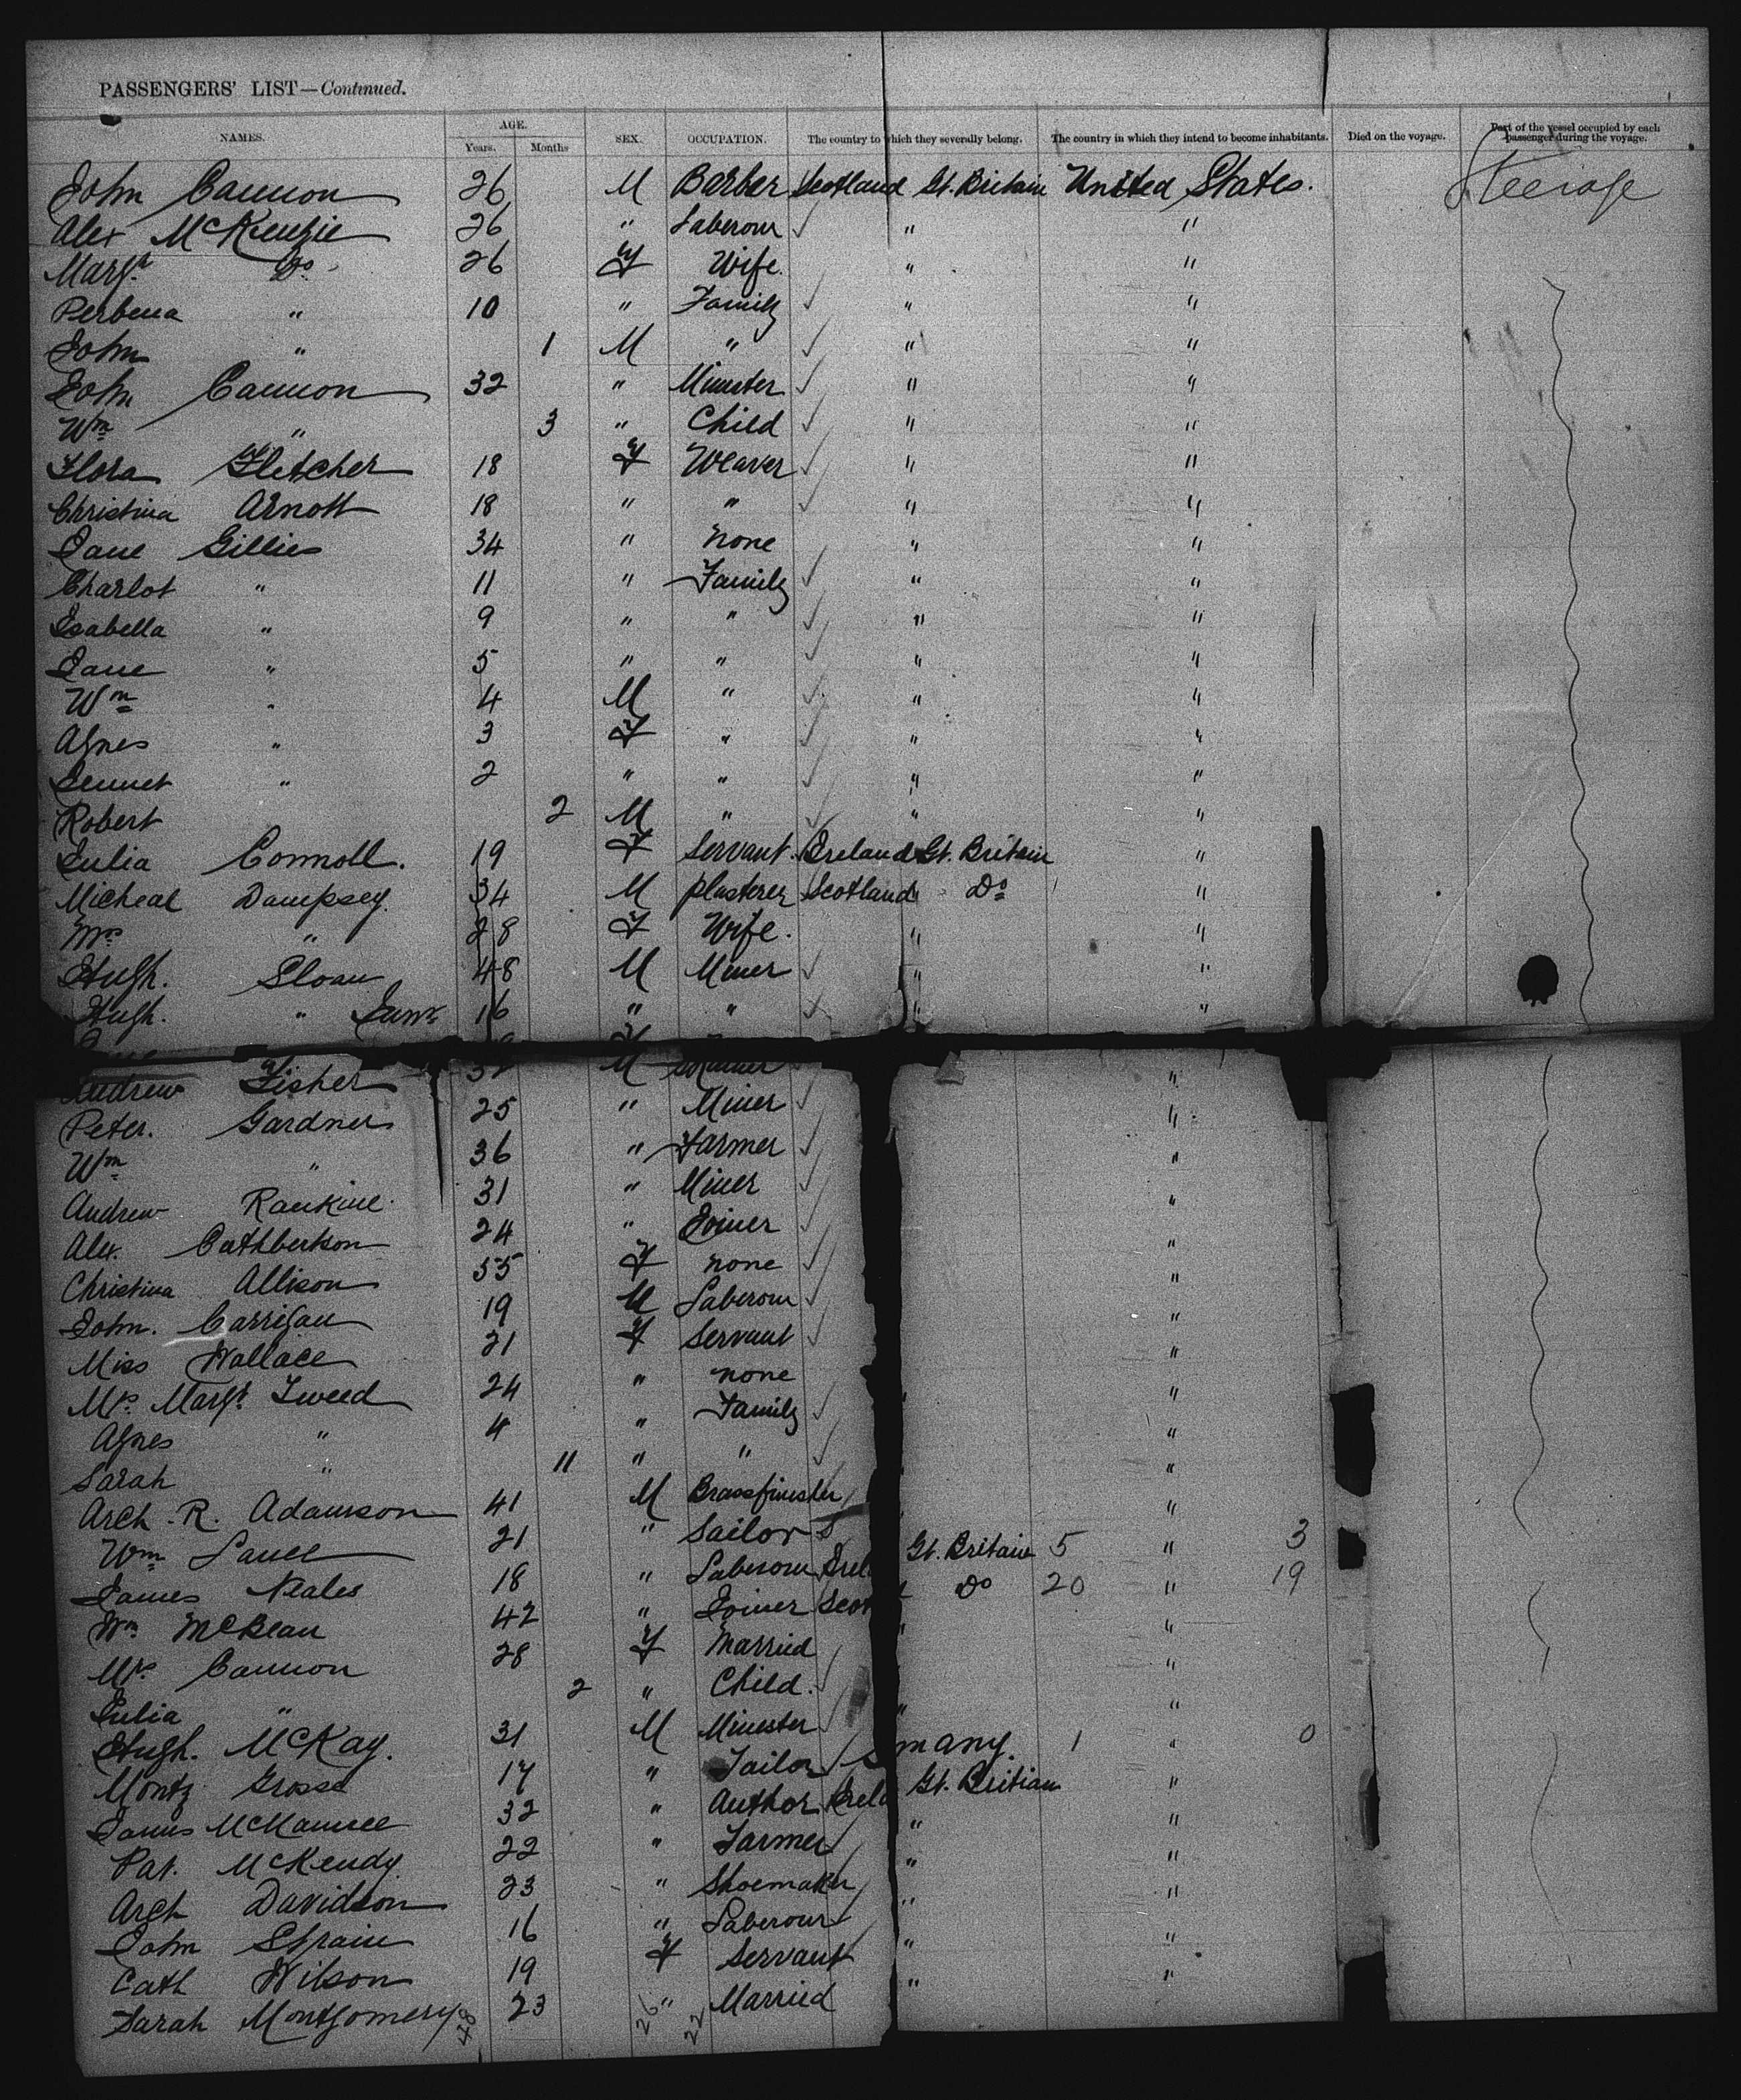 PASSENGERS' LIST—Continued.
NAMES. AGE. Years. Months SEX. OCCUPATION. The country to which they severally belong. The country in which they intend to become inhabitants. Died on the voyage. Part of the vessel occupied by each passenger during the voyage.
John Cannon 26 M Barber Scotland Gt. Britain United States. Steerage
Alex McKenzie 26 " Laberour " "
Margt Do 26 F Wife. " "
Perbena " 10 " Family " "
John " 1 M " " "
John Cannon 32 " Minister " "
Wm " 3 " Child " "
Flora Fletcher 18 F Weaver " "
Christina Arnott 18 " " " "
Jane Gillies 34 " None " "
Charlot " 11 " Family " "
Isabella " 9 " " " "
Jane " 5 " " " "
Wm " 4 M " " "
Agnes " 3 F " " "
Jennet " 2 " " " "
Robert 2 M " " "
Julia Connoll. 19 F Servant. Ireland Gt. Britain "
Micheal Dampsey. 34 M plasterer Scotland Do "
Mrs " 28 F Wife. " "
Hugh. Sloan 48 M Miner " "
Hugh. " Junr 16 " " " "
Andrew Fisher M "
Peter. Gardner 25 " Miner "
Wm " 36 " Farmer "
Andrew Rankine. 31 " Miner "
Alex. Cuthbertson 24 " Joiner "
Christina Allison 55 F none "
John. Carrigan 19 M Laberour "
Miss Wallace 21 F Servant "
Mrs. Margt. Tweed 24 " none "
Agnes " 4 " Family "
Sarah " 11 " " "
Arch. R. Adamson 41 M Brassfinisher "
Wm 21 " Sailor S Gt. Britain 5 " 3
James Neales 18 " Laberour Irel Do 20 " 19
Wm McBean 42 " Joiner Scot "
Mrs Cannon 28 F Married "
Julia " 2 " Child. "
Hugh. McKay. 31 M Minester "
Montz Grosse 17 " Tailor many. 1 " 0
James 32 " Author Irel Gt. Britian "
Pat. McKendy. 22 " Farmer " "
Arch Davidson 23 " Shoemaker " "
John Strain 16 " Laberour " "
Cath Wilson 19 F Servant " "
Sarah Montgomery 23 " Married " "
48 26 22